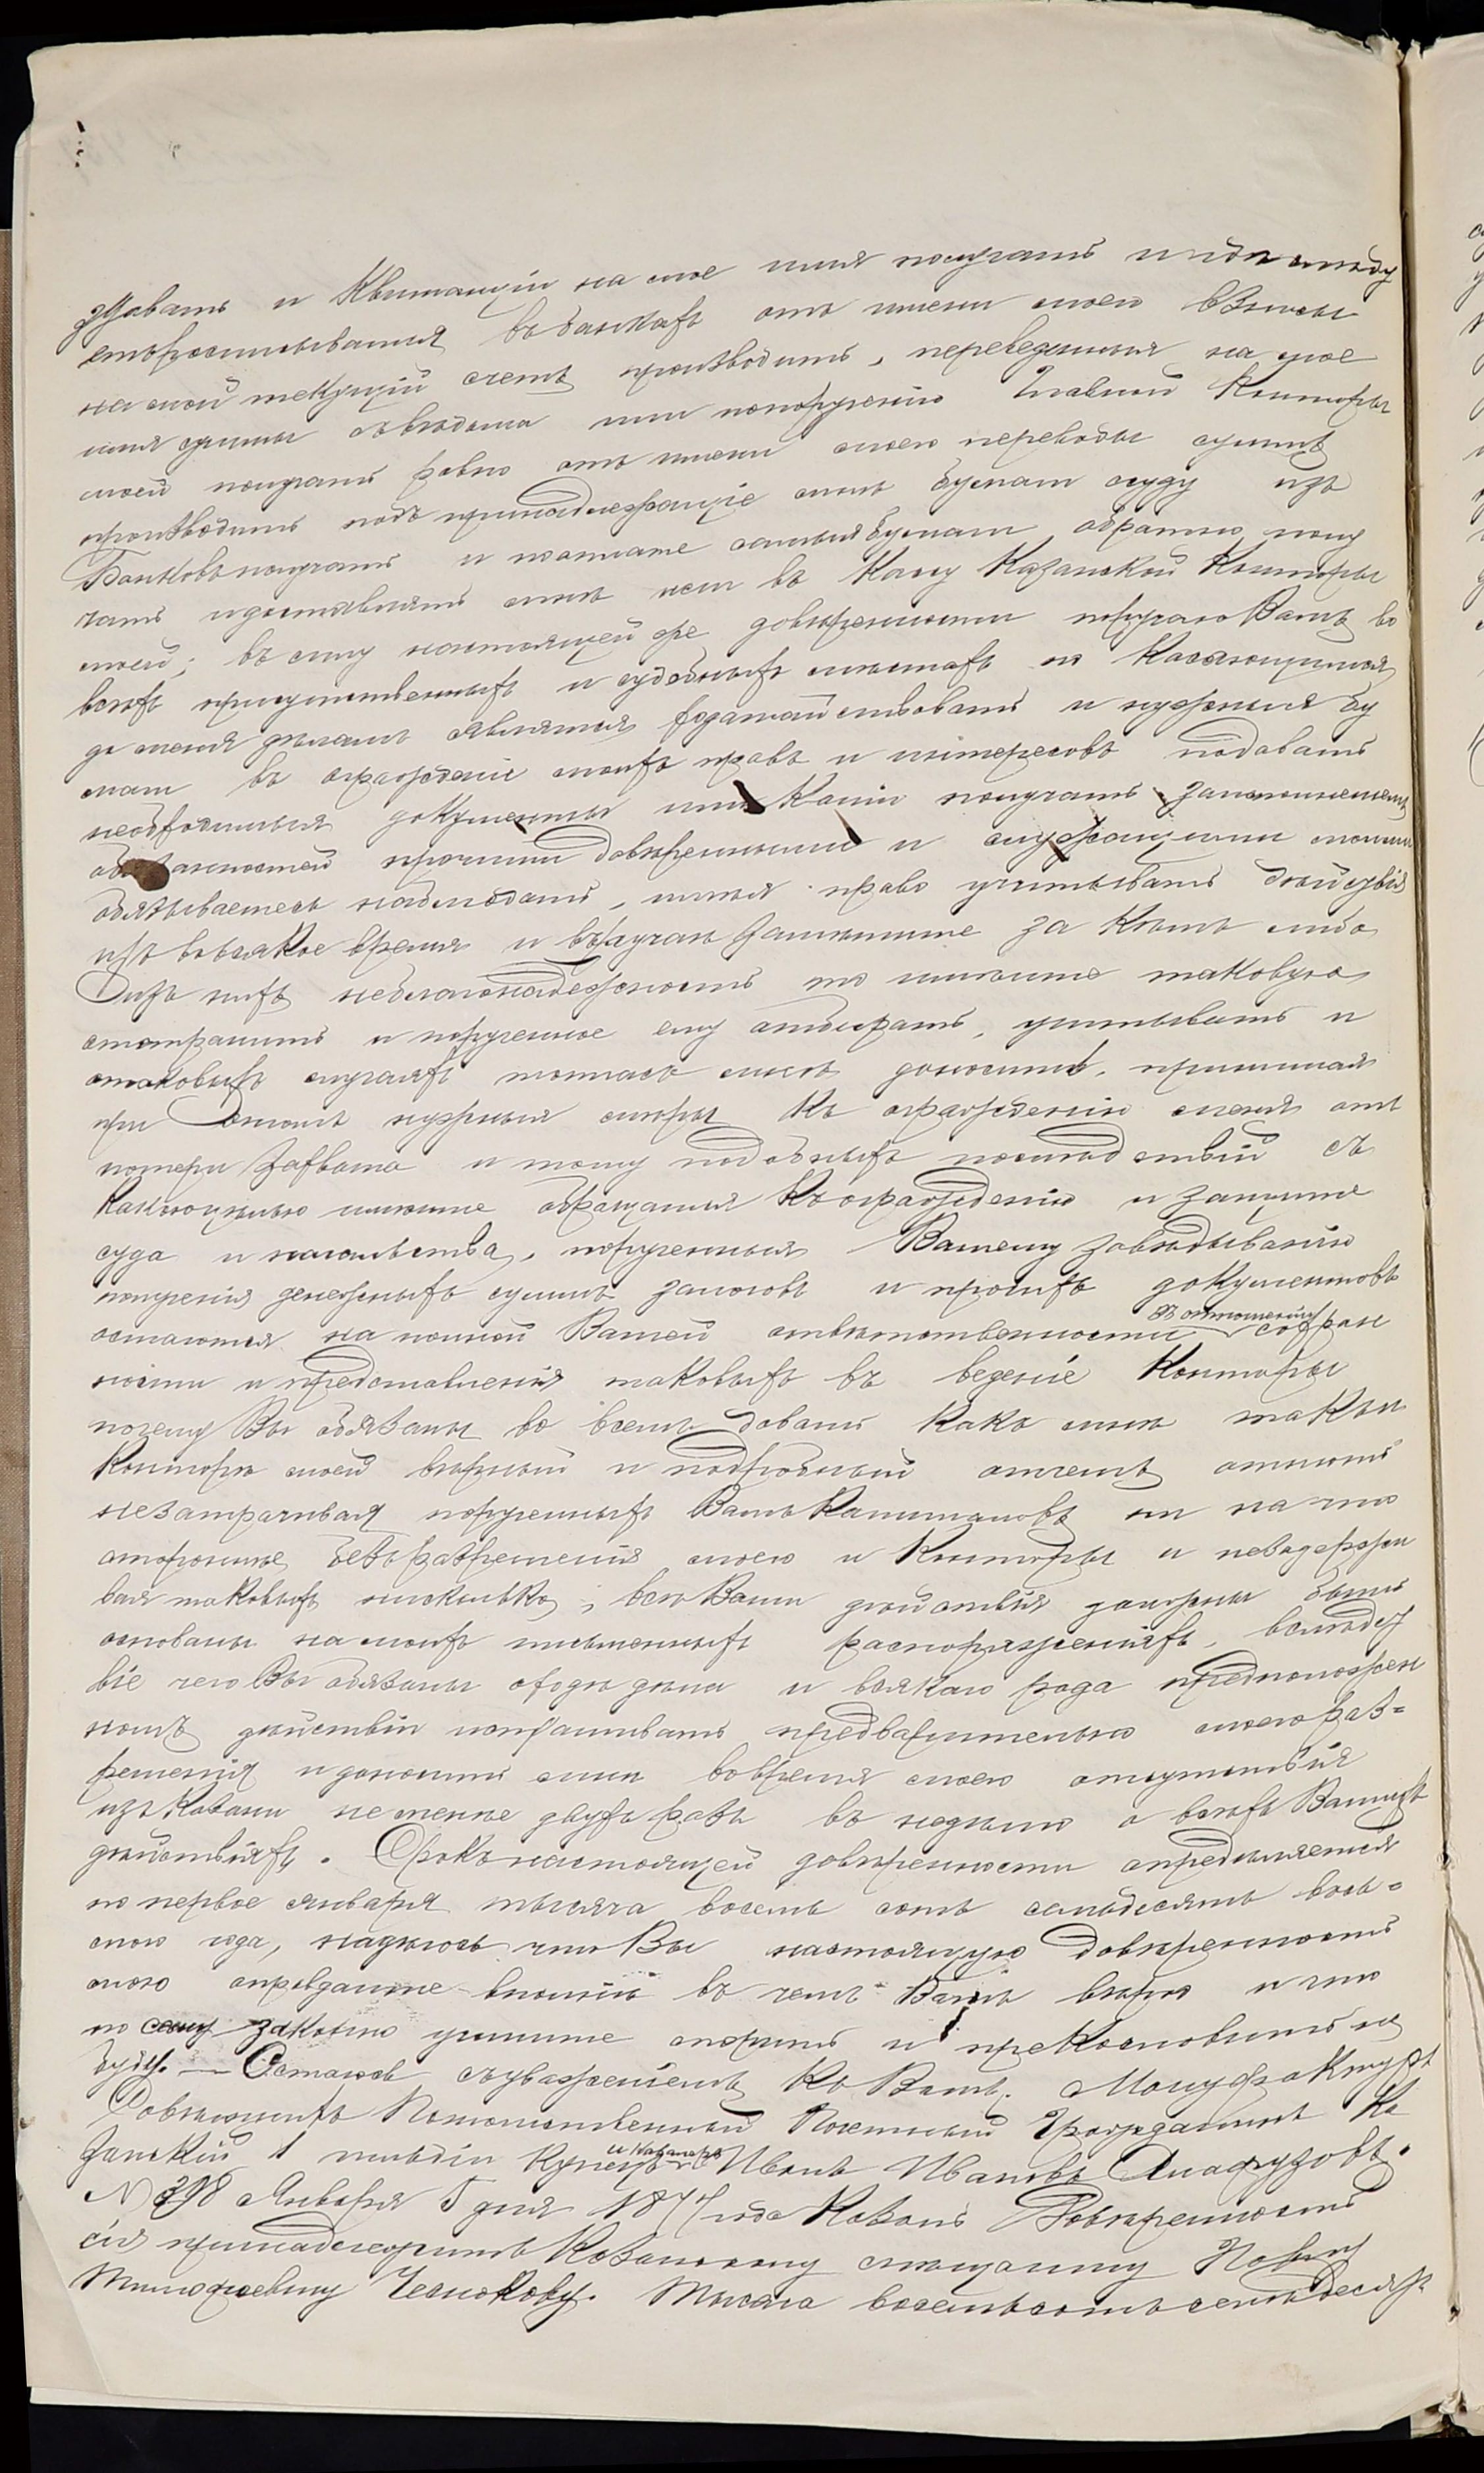 давать и Квитанціи на мое имя получать и
въ банкахъ отъ имени моего взносы
на мой текущій счетъ производить, переведенныя на мое
имя суммы съ вѣдома или попорученію Главной Конторы
моей получать равно отъ имени моего переводы суммъ
производить подъ принадлежащіе мнѣ бумаги ссуду изъ
Банковъ получать и пооплате самыя бумаги обратно полу
чать и доставлять мнѣ или въ Кассу Казанской Конторы
моей; въ силу настоящей же довѣренности поручаю Вамъ во
всѣхъ присутственныхъ и судебныхъ мѣстахъ по Касающимся
до меня дѣламъ являтся ходатайствовать и нужныя бу
маги въ огражденіе моихъ правъ и интересовъ подавать
необходимыя документы или Копіи получать, за исполненіемъ
обязанностей прочими довѣренными и служащими моими
обязываетесь наблюдать, имѣя право учитывать дѣйствія
ихъ вовсякое время и въслучаѣ Замѣтите за Кѣмъ либо
изъ нихъ неблагонадежность то имѣете таковую
отстранить и порученное ему отобрать, учитывать и
отаковыхъ случаяхъ тотчасъ мнѣ доносить, принимая
при Этомъ нужныя мѣры Къ огражденію меня отъ
потери Захвата и тому подобныхъ послѣдствій съ
Каковою цѣлью имѣете обращатся Къ огражденію и защите
суда и начальства, порученныя Вашему завѣдыванію
полученія денежныхъ суммъ залоговъ и прочихъ документовъ
остаются на полной Вашей отвѣтственности въ отношеніи сохран
ности и представленія таковыхъ въ веденіе Конторы
почему Вы обязаны во всемъ давать Какъ мнѣ такъ и
Конторѣ моей вѣрный и подробный отчетъ отнюдь
незатрачивая порученныхъ Вамъ Капиталовъ ни на что
стороннее безъ разрешенія моего и Конторы и невыдержи
вая таковыхъ нисколько; всѣ Ваши дѣйствія должны быть
основаны на моихъ письменныхъ распоряженіяхъ, вслѣдст
віе чего Вы обязаны оходѣ дѣла и всякаго рода предположен
номъ дѣйствіи испрашивать предварительно моего раз=
решенія и доносить мнѣ вовремя моего отсутствія
изъ Казани не менее двухъ разъ въ неделю о всѣхъ Вашихъ
дѣйствіяхъ. Срокъ настоящей довѣренности определяется
по первое января тысяча восемь сотъ семьдесятъ вось=
мого года, надѣюсь что Вы настоящую довѣренность
мою оправдаете вполнѣ въ чемъ Вамъ вѣрю и что
по сему законно учините спорить и прекословить не
буду. — Остаюсь съуваженіемъ Къ Вамъ. Мануфактуръ
Совѣтникъ Потомственный Почетный Гражданинъ Ка
занскій 1 гильдіи Купецъ и Кавалеръ Иванъ Ивановъ Алафузовъ.
N 398 Января 5 дня 1877 года Казань Довѣренность
сія принадлежитъ Казанскому мѣщанину Павлу
Тимофеевичу Чеснокову. Тысяча восемьсотъ семьдесятъ